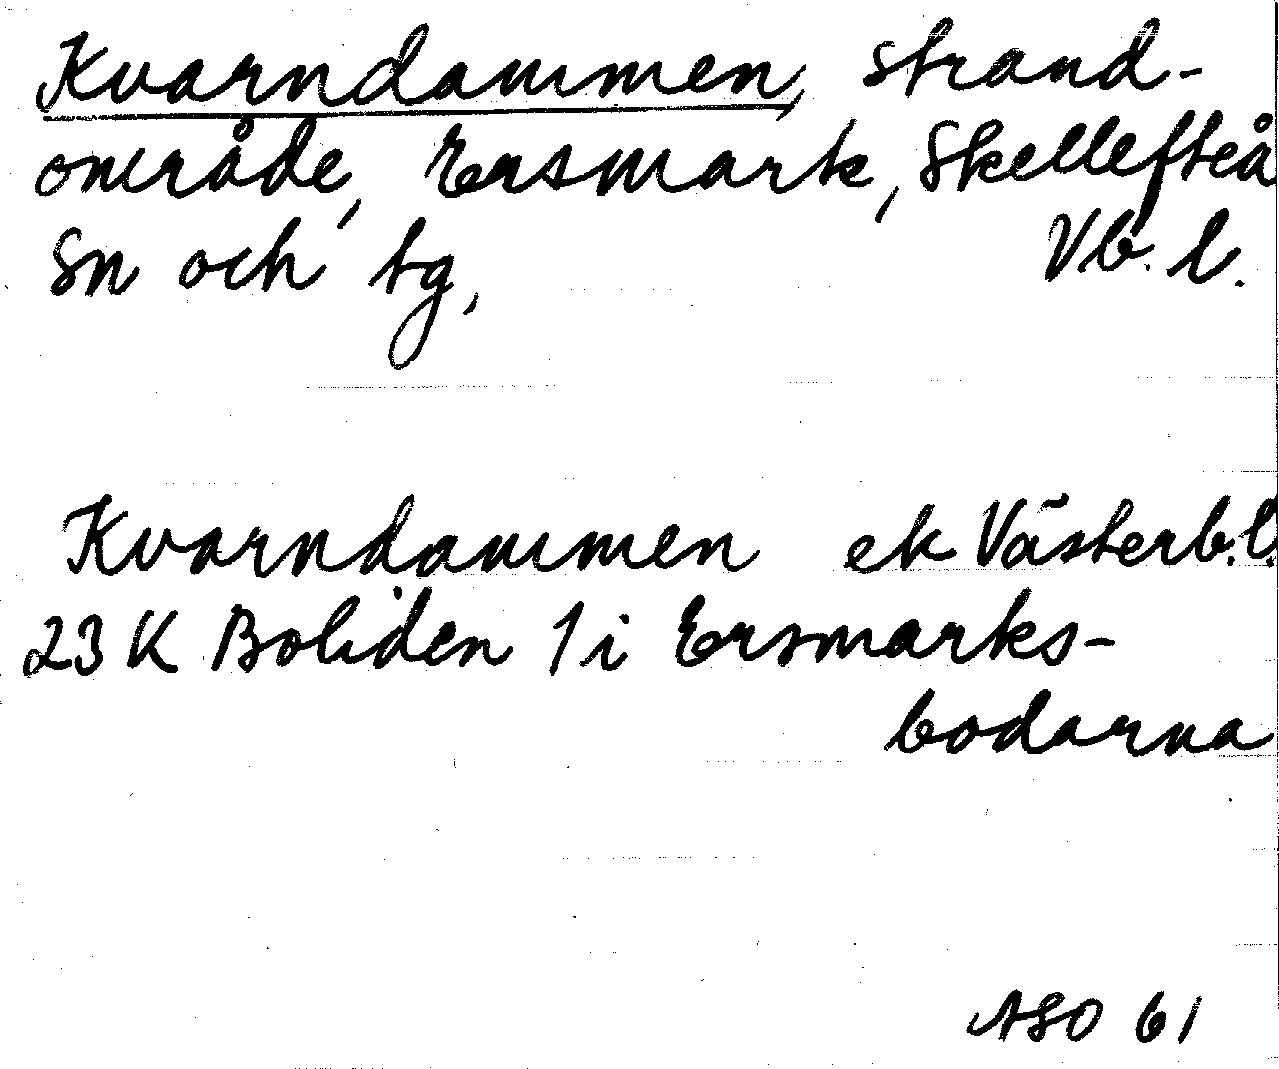 Kvarndammen, strand-
område, Ersmark, Skellefteå
Sn och tg, Vb. l.
Kvarndammen ek Västerb.l.
23 K Boliden 1 i Ersmarks-
bodarna
ASO 61